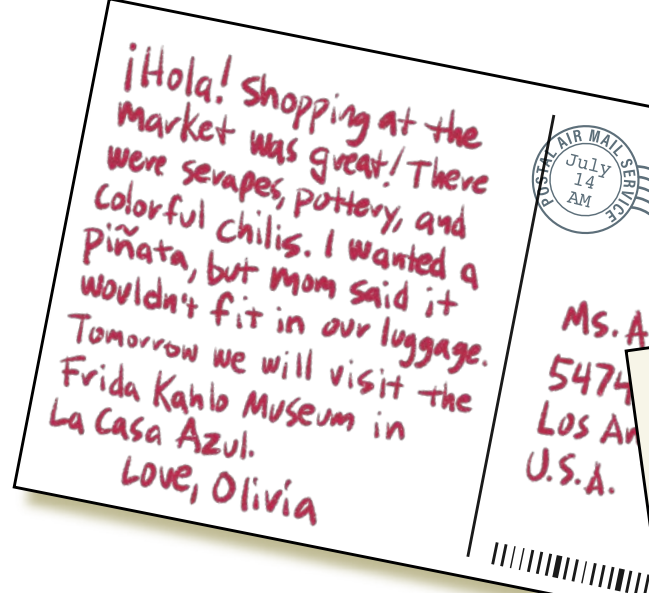 ¡Hola! Shopping at the
market was great! There
were serapes, pottery, and
colorful chilis. I wanted a
piñata, but mom said it
wouldn't fit in our luggage.
Tomorrow we will visit the
Frida Kahlo Museum in
La Casa Azul.
Love, Olivia
POSTAL AIR MAIL SERVICE
July
14
AM
Ms. A
5474
Los An
U.S.A.